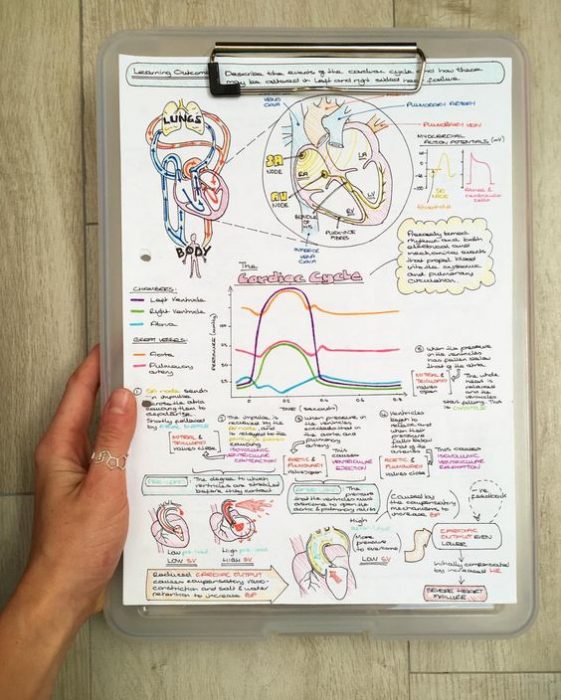 Learning Outcome: Describe the events of the cardiac cycle and how these
may be altered in left and right sided heart failure.
VENA
CAVA
PULMONARY ARTERY
PULMONARY VEIN
LUNGS
BODY
SA
NODE
AV
NODE
BUNDLE
OF
HIS
PURKINJE
FIBRES
INFERIOR
VENA
CAVA
RA
LA
RV
LV
MYOCARDIAL
ACTION POTENTIALS (mV)
SA
NODE
that propel blood
and pulmonary
circulation.
The
Cardiac Cycle
CHAMBERS:
Left Ventricle
Right Ventricle
Atria
GREAT VESSELS:
Aorta
Pulmonary
artery
PRESSURE (mmHg)
TIME (Seconds)
0
0.2
0.4
0.6
0.8
① SA node sends
an impulse
across the atria
causing them to
depolarise.
Shortly followed
by
② The impulse is
MITRAL &
TRICUSPID
valves close
This
causes
ISOVOLUMIC
VENTRICULAR
CONTRACTION
③ when pressure in
the ventricles
exceeds that in
the aorta and
pulmonary
artery
AORTIC &
PULMONARY
valves open
This
causes
VENTRICULAR
EJECTION
④ Ventricles
begin to
relax and
when their
pressure
falls below
that of the
AORTIC &
PULMONARY
valves close
This causes
ISOVOLUMIC
VENTRICULAR
RELAXATION
⑤ when the pressure
in the ventricles
has fallen below
that of the atria
MITRAL &
TRICUSPID
valves
open
The whole
heart is
relaxed
and the
ventricles
start filling.
This is
DIASTOLE
PRE-LOAD
The degree to which
ventricles are stretched
before they contract
Low pre-load
LOW SV
High pre-load
HIGH SV
The pressure
that the ventricles must
overcome to open the
aortic & pulmonary valves
High
More
pressure
to overcome
LOW SV
Caused by
the compensatory
mechanisms to
increase BP
-ve
FEEDBACK
CARDIAC
OUTPUT EVEN
LOWER
Initially compensated
by increased HR
SEVERE HEART
FAILURE
Reduced CARDIAC OUTPUT
causes compensatory vaso-
constriction and salt & water
retention to increase BP